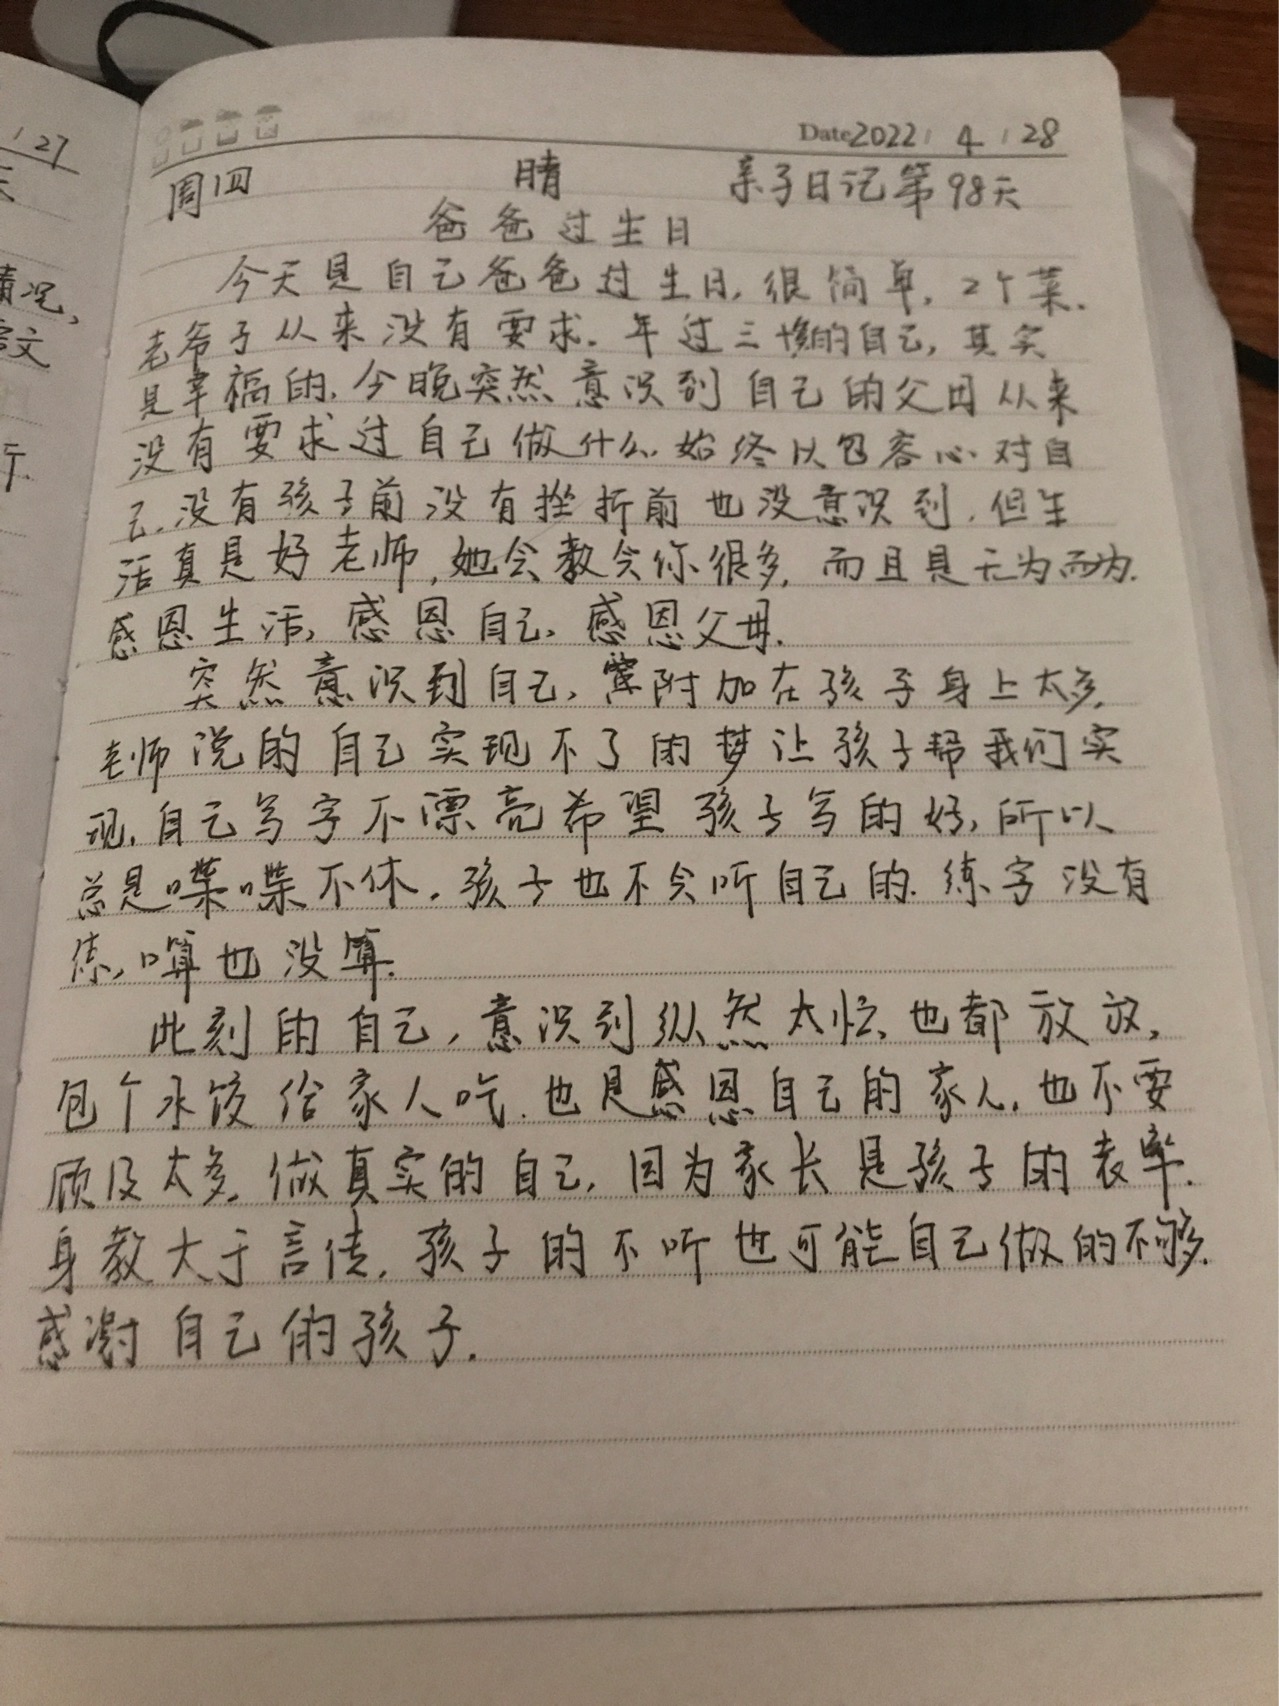 / 27
情况,
Date 2022 / 4 / 28
周四 晴 亲子日记第98天
爸爸过生日
今天是自己爸爸过生日,很简单,2个菜.
老爷子从来没有要求.年过三拾的自己,其实
是幸福的.今晚突然意识到自己的父母从来
没有要求过自己做什么.始终以包容心对自
己.没有孩子前没有挫折前也没意识到.但生
活真是好老师,她会教会你很多,而且是无为而为.
感恩生活,感恩自己,感恩父母.
突然意识到自己,常附加在孩子身上太多,
老师说的自己实现不了的梦让孩子帮我们实
现.自己写字不漂亮希望孩子写的好,所以
总是喋喋不休.孩子也不会听自己的.练字没有
练,口算也没算.
此刻的自己,意识到纵然太忙,也都放放,
包个水饺给家人吃.也是感恩自己的家人.也不要
顾及太多,做真实的自己,因为家长是孩子的表率.
身教大于言传,孩子的不听也可能自己做的不够.
感谢自己的孩子.